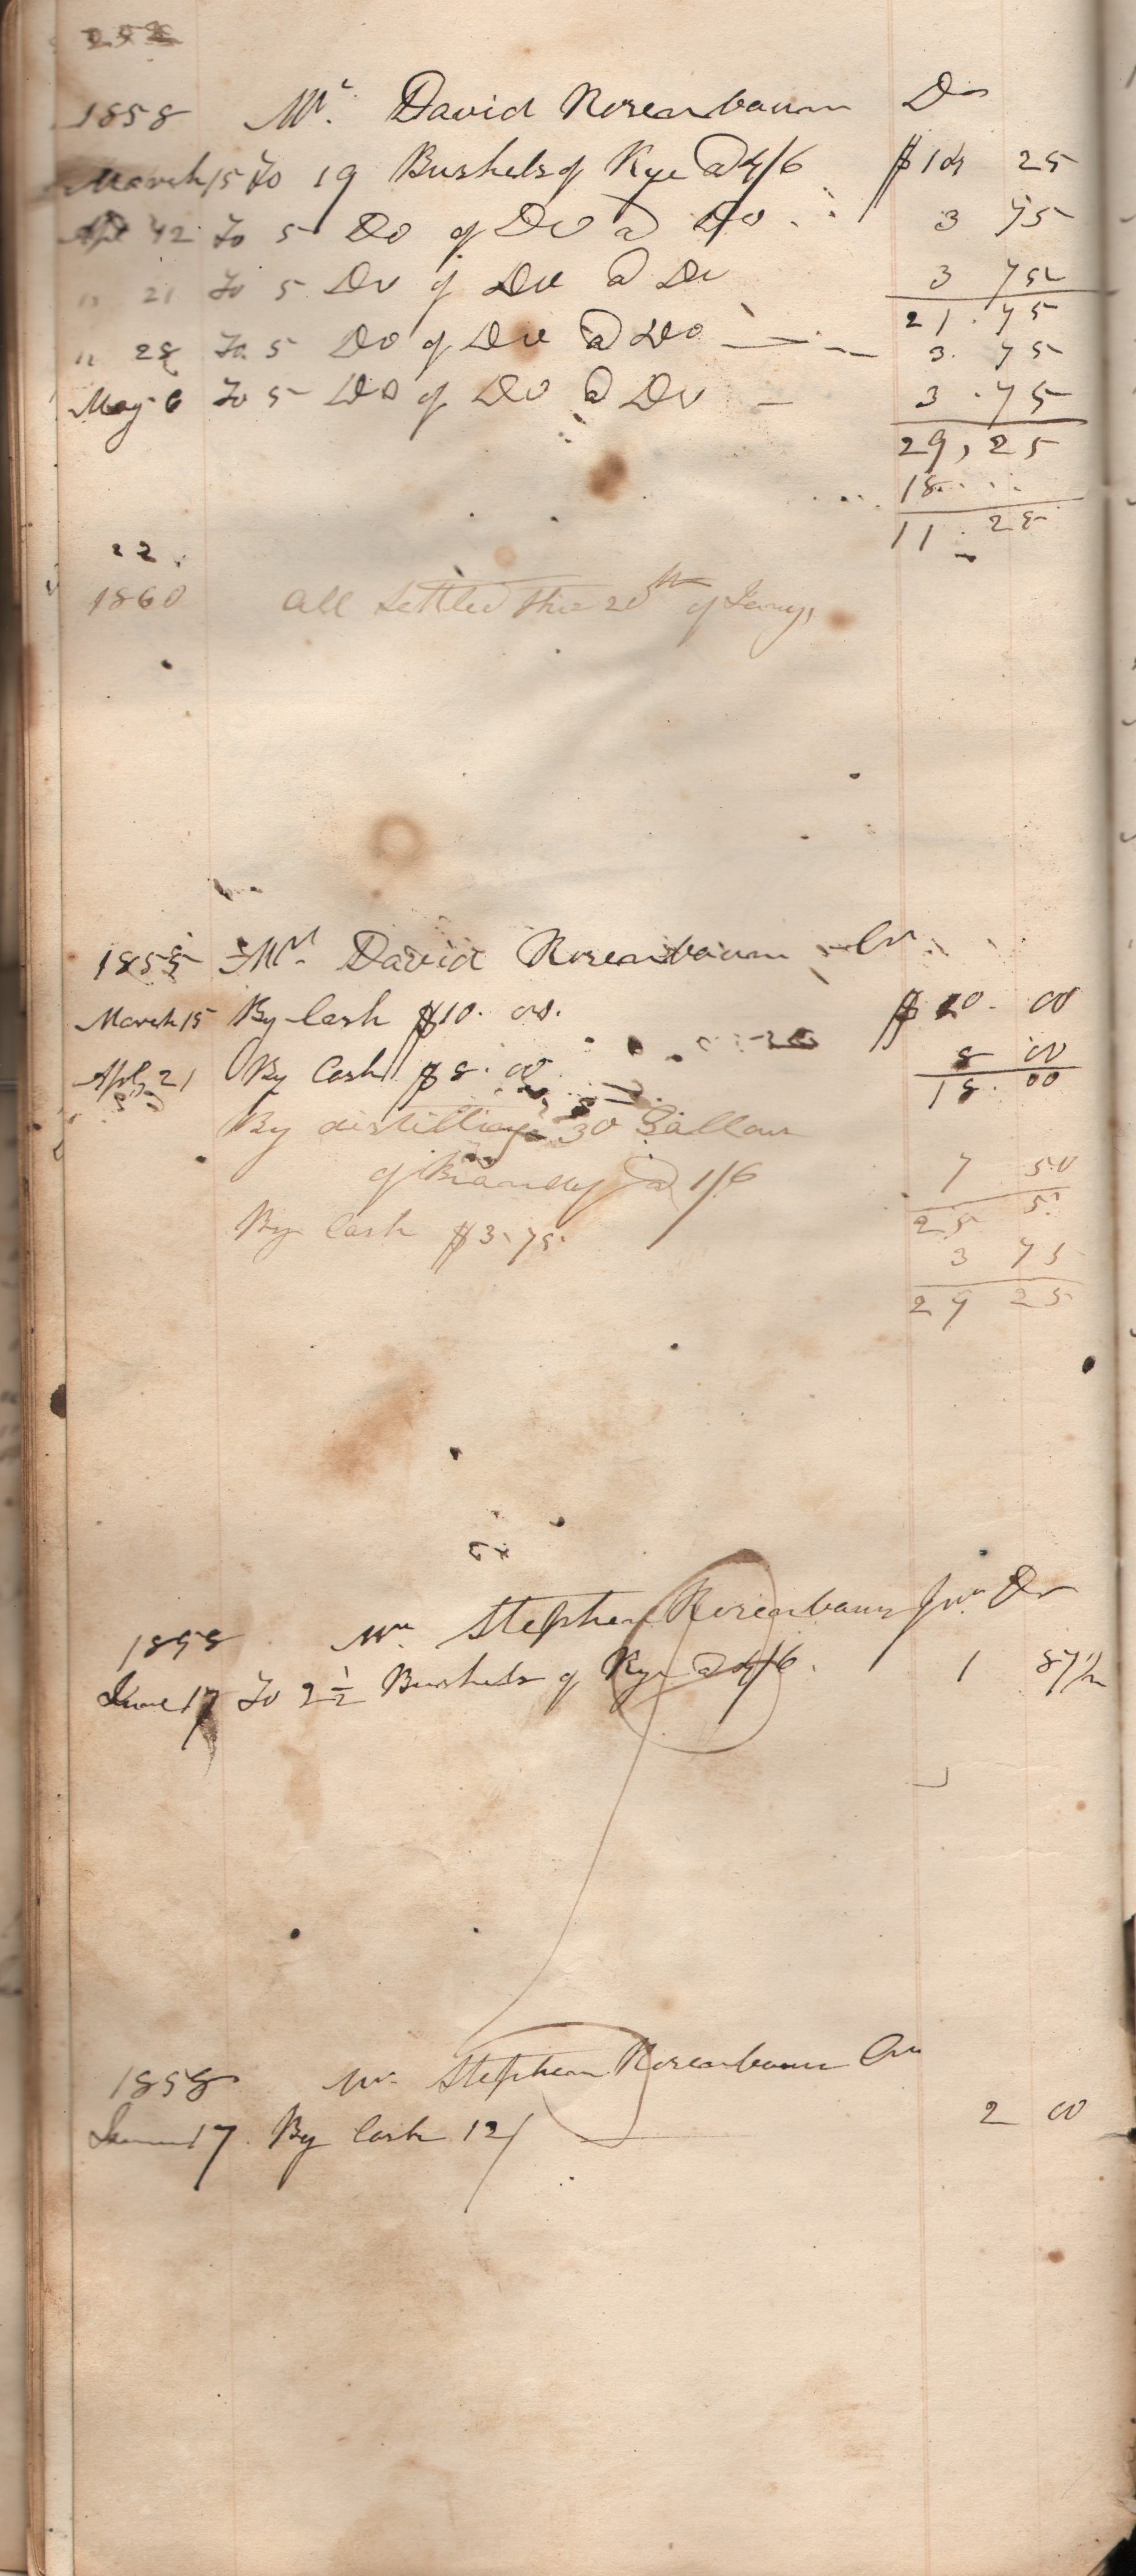 252
1858 Mr. David Rosenbaum Dr
March 15 To 19 Bushels of Rye @ 4/6 $14 25
Apl 12 To 5 Do of Do @ Do 3 75
" 21 To 5 Do of Do @ Do 3 75
21.75
" 28 To 5 Do of Do @ Do 3.75
May 6 To 5 Do of Do @ Do 3.75
29,25
18
11.25
22
1860 All Settled this 20th of Jany,
1858 Mr. David Rosenbaum Cr
March 15 By Cash $10.00. $10.00
Apl 21 By Cash $8.00 8 00
18.00
By distilling 30 Gallons
of Brandy @ 1/6 7 50
25 5
By Cash $3.75 3 75
29 25
1858 Mr. Stephen Rosenbaum Jnr. Dr
June 17 To 2 1/2 Bushels of Rye @ 4/6. 1 87 1/2
1858 Mr. Stephen Rosenbaum Cr
June 17 By Cash 12/ 2 00